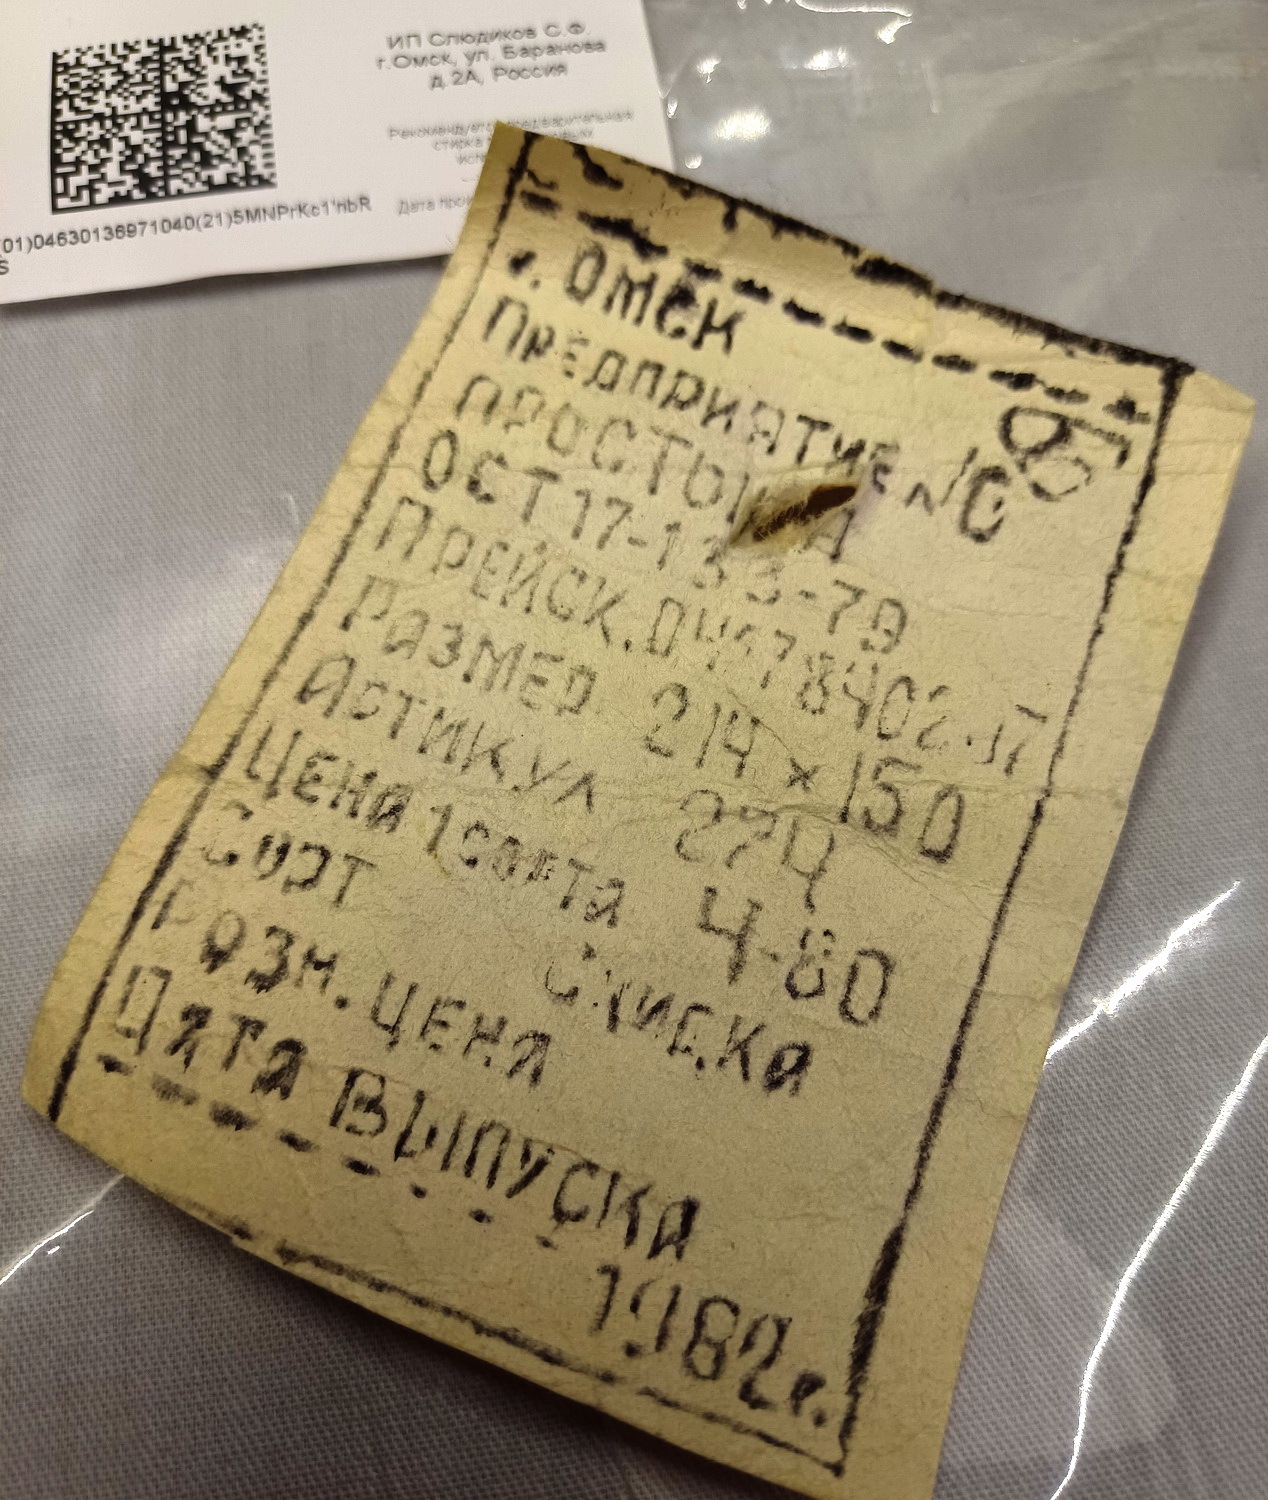 ИП Слюдиков С.Ф.
г.Омск, ул. Баранова
д.2А, Россия
Рекомендуется предварительная
стирка
Дата
(01)04630136971040(21)5MNPrKc1'nbR
S
г. ОМСК
Предприятие №
ПРОСТЫНЯ
ОСТ 17-133-79
ПРЕЙСК.
Размер 214 × 150
Астикул 274
ЦЕНА 1 сорта 4-80
Сорт
Розн. ЦЕНА
Дата ВЫПУСКА
1982г.